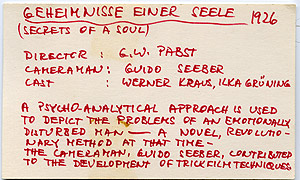 GEHEIMNISSE EINER SEELE 1926
(SECRETS OF A SOUL)
DIRECTOR : G.W. PABST
CAMERAMAN : GUIDO SEEBER
CAST : WERNER KRAUS, ILKA GRÜNING
A PSYCHO-ANALYTICAL APPROACH IS USED
TO DEPICT THE PROBLEMS OF AN EMOTIONALLY
DISTURBED MAN — A NOVEL, REVOLUTIO-
NARY METHOD AT THAT TIME —
THE CAMERAMAN, GUIDO SEEBER, CONTRIBUTED
TO THE DEVELOPMENT OF TRICKFILM TECHNIQUES